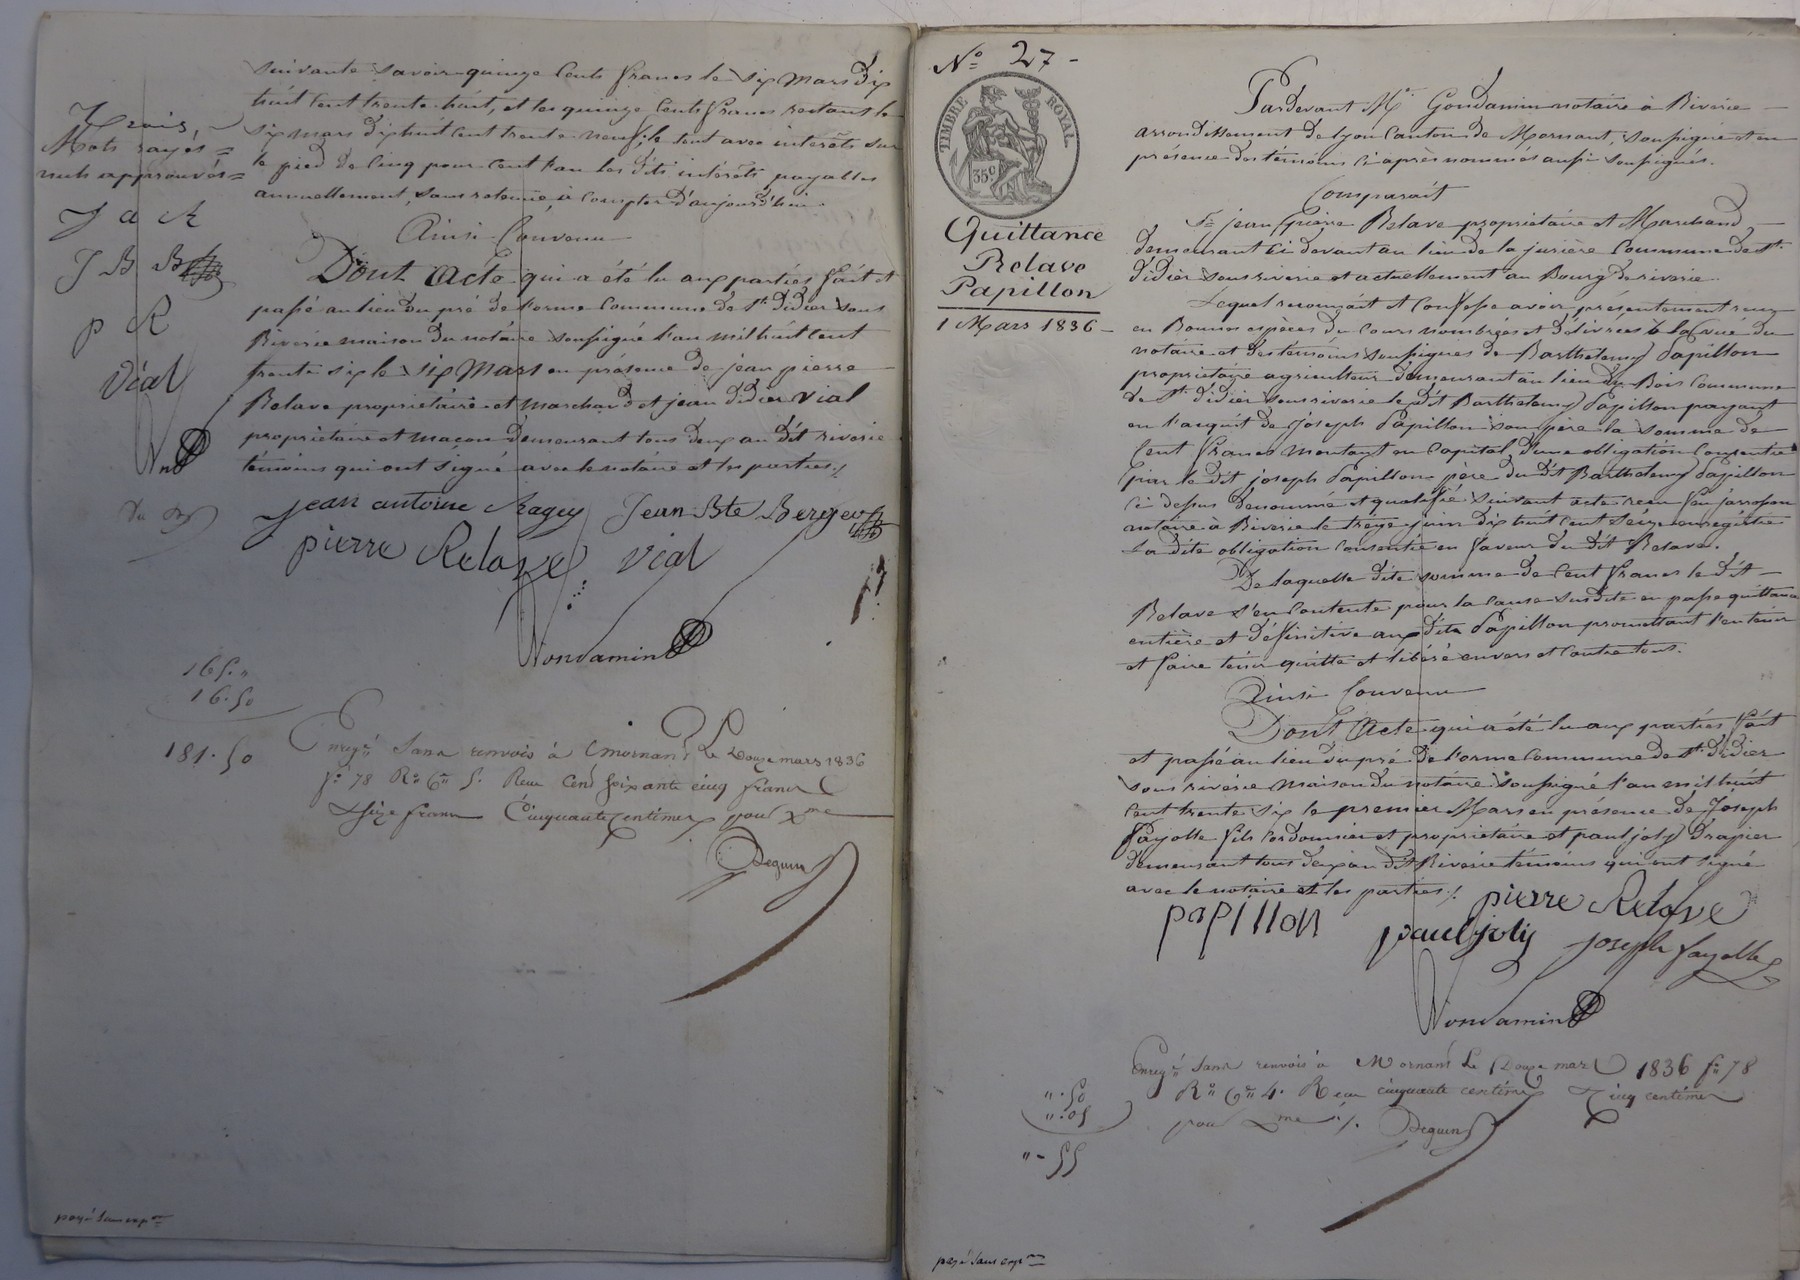 suivante savoir quinze cents francs le six Mars dix
huit cent trente huit, et les quinze cents francs restant le
six mars dix huit cent trente neuf, le tout avec intérêts sur
le pied de cinq pour cent l'an les dits intérêts payables
annuellement, sans retenue, à compter d'aujourd'hui.
Ainsi Convenu
Dont Acte qui a été lu aux parties fait et
passé au lieu du pré de l'orme Commune de St. Didier sous
Riverie maison du notaire soussigné l'an mil huit cent
trente six le six Mars en présence de jean pierre
Relave propriétaire et marchand et jean didier Vial
propriétaire et maçon demeurant tous deux au dit riverie
témoins qui ont signé avec le notaire et les parties ./.
Trois
Mots rayés
nuls approuvés
J a R
J B B
p R
Vial
jean antoine Ragey Jean Bte Berger
pierre Relave Vial
Gondamin
165. "
16. 50
181. 50
Enregé. Sans renvois à Mornant Le Douze mars 1836
fo. 78 Ro. Cn. 5. Reçu Cent soixante cinq francs
Seize francs Cinquante Centimes pour Xme
Deguin
payé sans exp.on
No. 27 -
TIMBRE ROYAL
35 c
Quittance
Relave
Papillon
1 Mars 1836 -
Pardevant Me. Gondamin notaire à Riverie
arrondissement de Lyon Canton de Mornant, soussigné et en
présence des témoins ci après nommés aussi soussignés.
Comparait
Sr. jean pierre Relave propriétaire et Marchand
demeurant ci devant au lieu de la jurière Commune de St.
Didier sous riverie et actuellement au Bourg de riverie.
Lequel reconnait et Confesse avoir présentement reçu
en Bonnes espèces du Cours nombrées et délivrées à la vue du
notaire et des témoins soussignés de Barthelemy Papillon
propriétaire agriculteur demeurant au lieu du Bois Commune
de St. didier sous riverie le dit Barthelemy Papillon payant
en l'acquit de Joseph Papillon son père la somme de
Cent francs Montant en Capital d'une obligation Consentie
par le dit joseph Papillon père du dit Barthelemy Papillon
ci dessus dénommé et qualifié suivant acte reçu feu
notaire à Riverie le treize juin dix huit cent seize enregistré
La dite obligation Consentie en faveur du dit Relave.
De laquelle dite somme de Cent francs le dit
Relave s'en Contente pour la Cause susdite en passe quittance
entière et définitive aux dits Papillon promettant l'en tenir
et faire tenir quitte et libéré envers et contre tous.
Ainsi Convenu
Dont Acte qui a été lu aux parties fait
et passé au lieu du pré de l'orme Commune de St. Didier
sous riverie maison du notaire soussigné l'an mil huit
cent trente six le premier Mars en présence de Joseph
Fayolle fils Cordonnier et propriétaire et paul joly Drapier
demeurant tous deux au dit Riverie témoins qui ont signé
avec le notaire et les parties ./.
papillon pierre Relave
paul joly joseph fayolle
Gondamin
Enregé. Sans renvois à Mornant Le Douze mars 1836 fo. 78
Ro. Cn. 4. Reçu cinquante centimes cinq centimes
pour Xme ./. Deguin
". 50
". 05
" - 55
payé sans exp.on